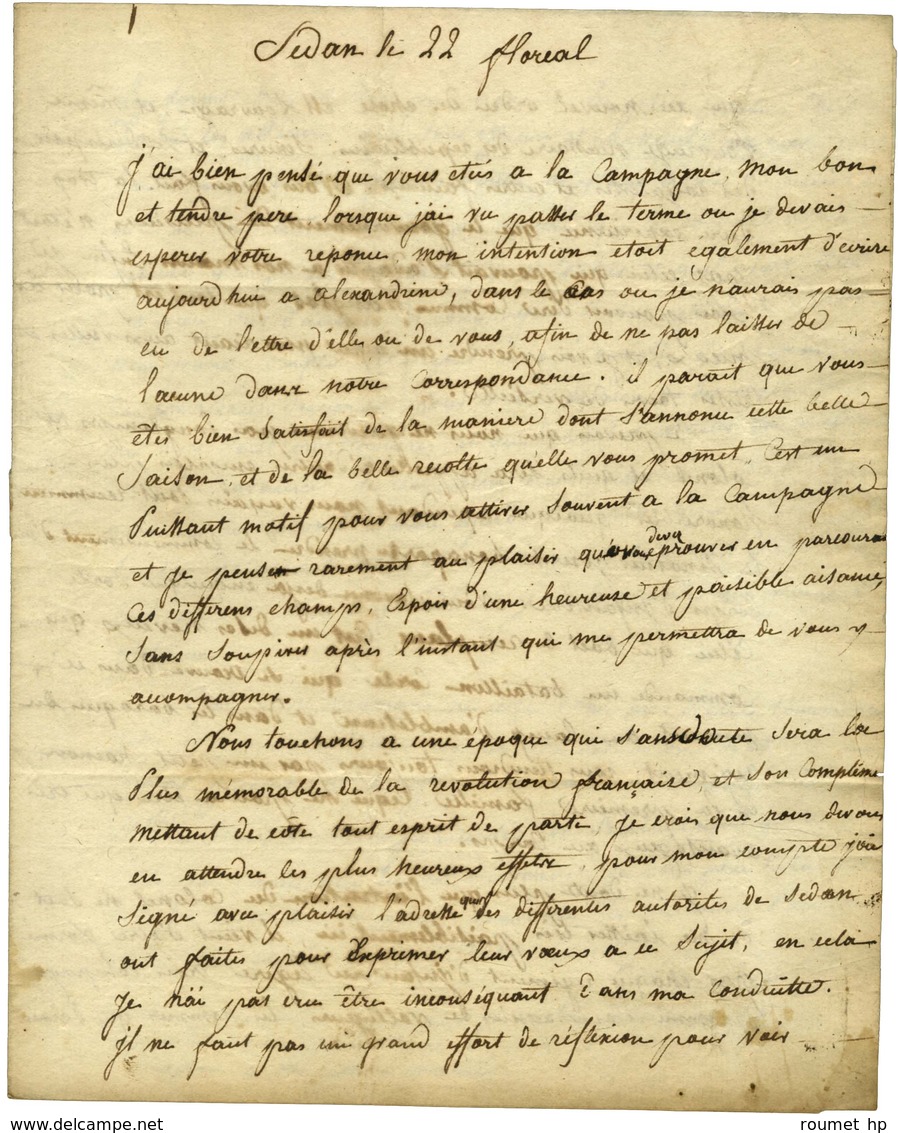 Sedan le 22 floreal
J'ai bien pensé que vous eties a la Campagne, mon bon
et tendre pere lorsque j'ai vu passer le terme ou je devais
esperer votre reponce, mon intention etoit également d'ecrire
aujourdhui a alexandrine, dans le Cas ou je n'aurais pas
eu de l'ettre d'elle ou de vous, afin de ne pas laisser de
lacune dans notre Correspondance. il parait que vous
êtes bien satisfait de la maniere dont s'annonce cette belle
saison, et de la belle recolte qu'elle vous promet, C'est un
Puissant motif pour vous attirer souvent a la Campagne
et je pense rarement au plaisir que devez eprouver en parcourant
Ces differens champs, Espoir d'une heureuse et paisible aisance,
sans soupirer après l'instant qui me permettra de vous y
accompagner.
Nous touchons a une époque qui s'ans doute sera la
Plus mémorable de la revolution française, et son Complême
mettant de cote tout esprit de parti, je crois que nous devons
en attendre les plus heureux effets, pour mon compte j'ai
signé avec plaisir l'adresse qu'en les differentes autorites de sedan
ont faites pour Exprimer leur vœux a ce sujet, en cela
je n'ai pas cru être inconséquant Dans ma Conduitte.
il ne faut pas un grand effort de réflexion pour voir
roumet hp